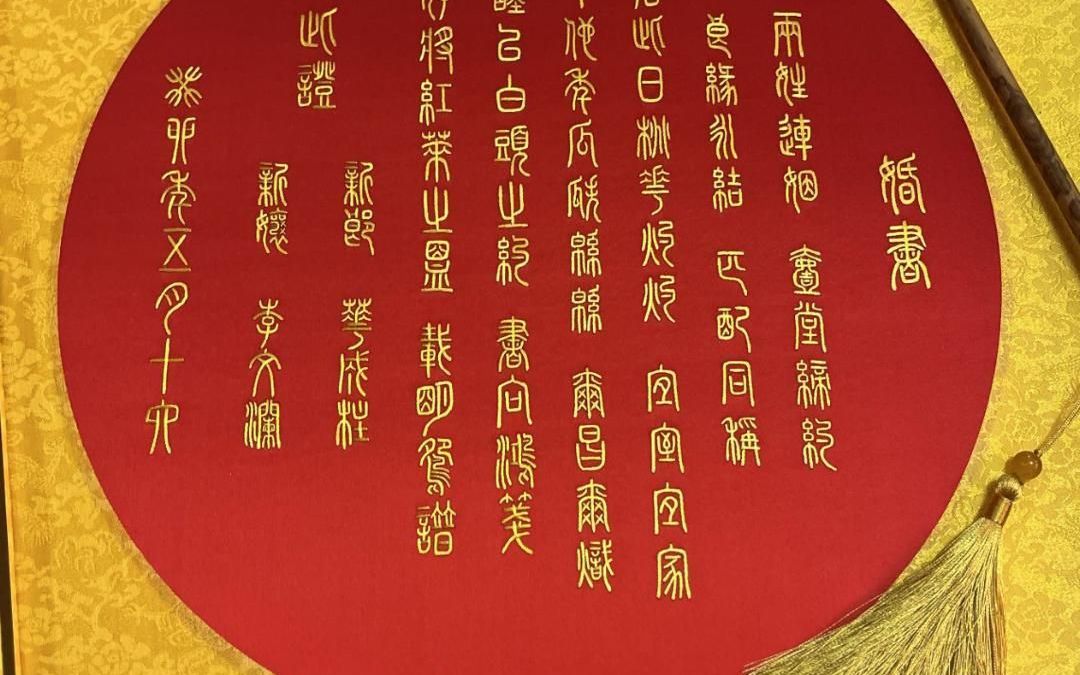 婚書
兩姓連姻 壹堂締約
良緣永結 匹配同稱
看此日桃花灼灼 宜室宜家
卜他年瓜瓞緜緜 爾昌爾熾
謹以白頭之約 書向鴻箋
好將紅葉之盟 載明鴛譜
此證
新郎 華成柱
新孃 李文瀾
癸卯年五月十六